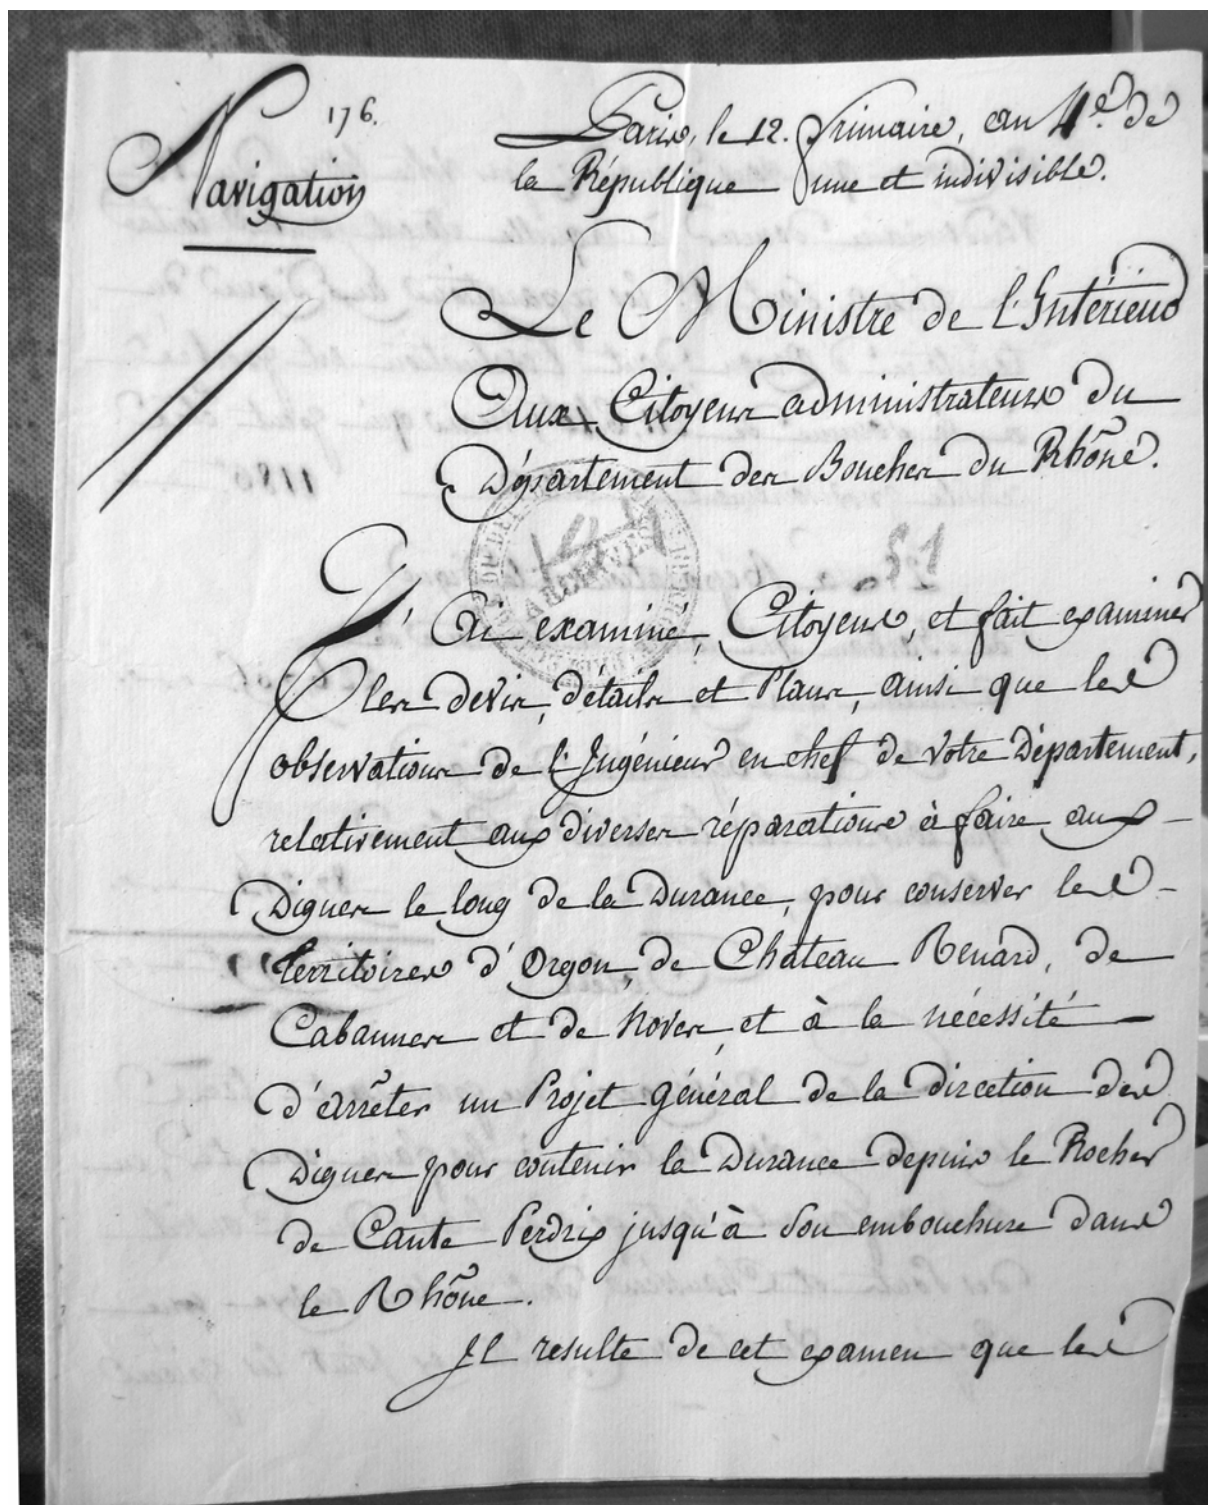 176.
Navigation
Paris, le 12. Frimaire, an 4e. de
la République une et indivisible.
Le Ministre de l'Intérieur
Aux Citoyens administrateurs du
Département des Bouches du Rhône.
J'ai examiné, Citoyens, et fait examiner
les devis, détails et Plans, ainsi que les
observations de l'Ingénieur en chef de votre Département,
relativement aux diverses réparations à faire aux
Digues le long de la Durance, pour conserver les
territoires d'Orgon, de Château Renard, de
Cabannes et de Noves, et à la nécessité
d'arrêter un Projet général de la direction des
Digues pour contenir la Durance depuis le Rocher
de Cante Perdrix jusqu'à son embouchure dans
le Rhône.
Il resulte de cet examen que les